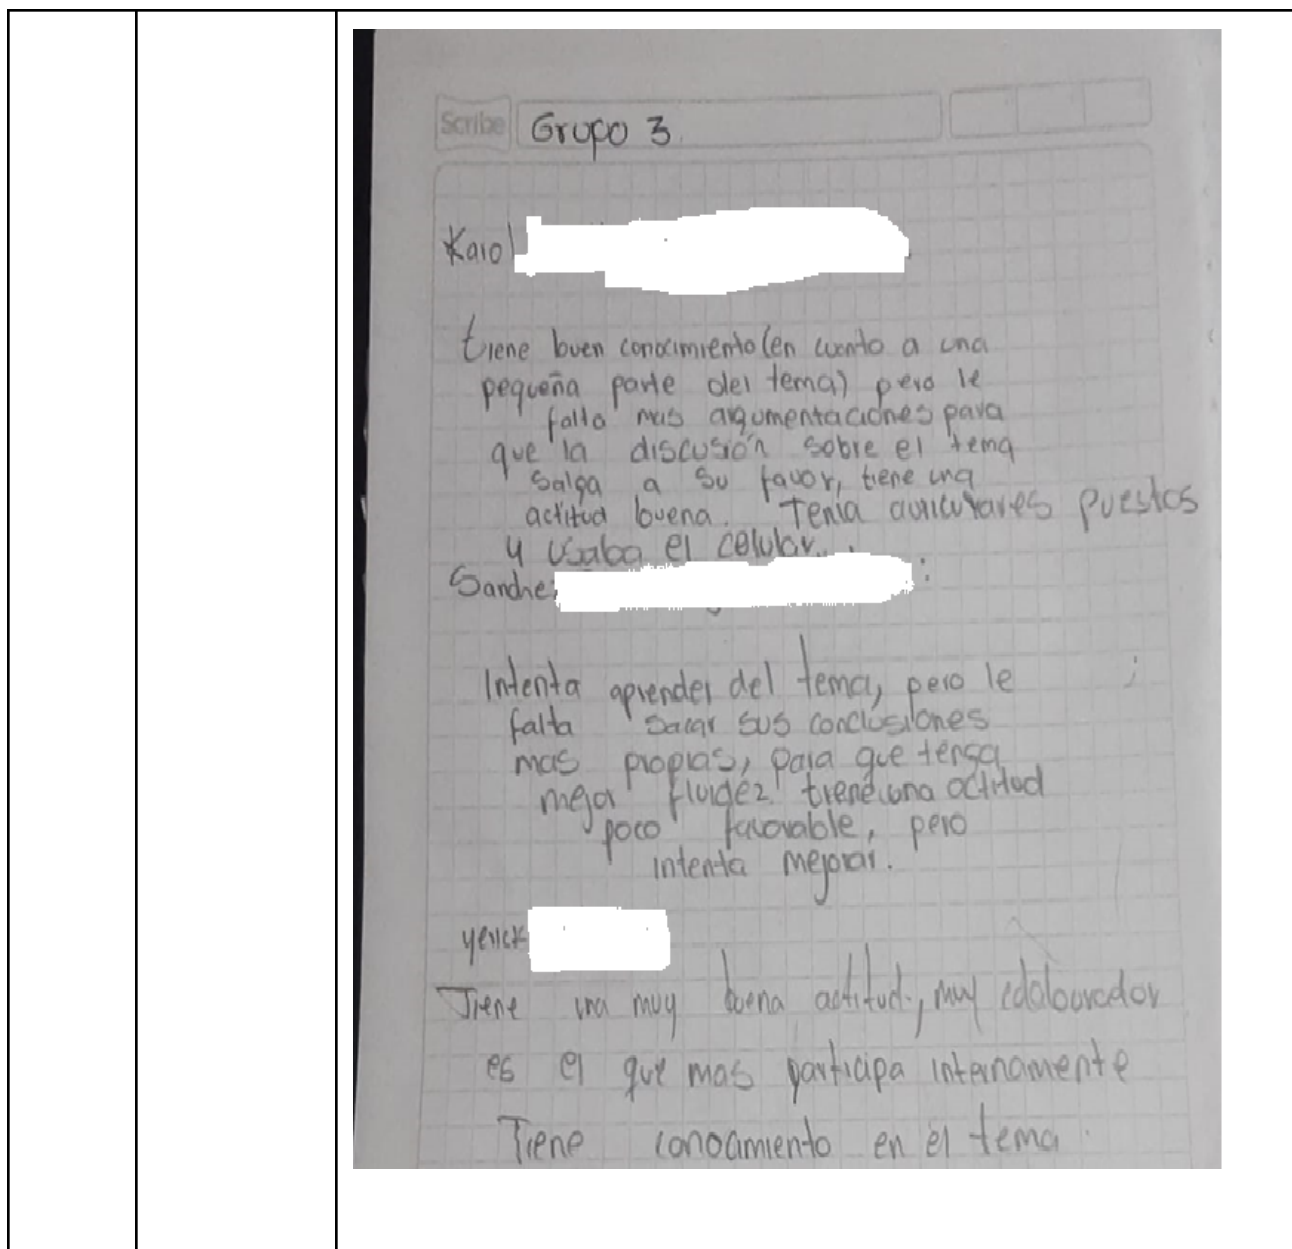 Scribe Grupo 3
Karol
tiene buen conocimiento (en cuanto a una
pequeña parte del tema) pero le
falta mas argumentaciones para
que la discusión sobre el tema
salga a su favor, tiene una
actitud buena. Tenia auriculares puestos
y usaba el celular..
Sanche
Intenta aprender del tema, pero le
falta sacar sus conclusiones
mas propias, para que tenga
mejor fluidez. tiene una actitud
poco favorable, pero
intenta mejorar.
yerick
Tiene una muy buena actitud, muy colabourador
es el que mas participa internamente
Tiene conocimiento en el tema.